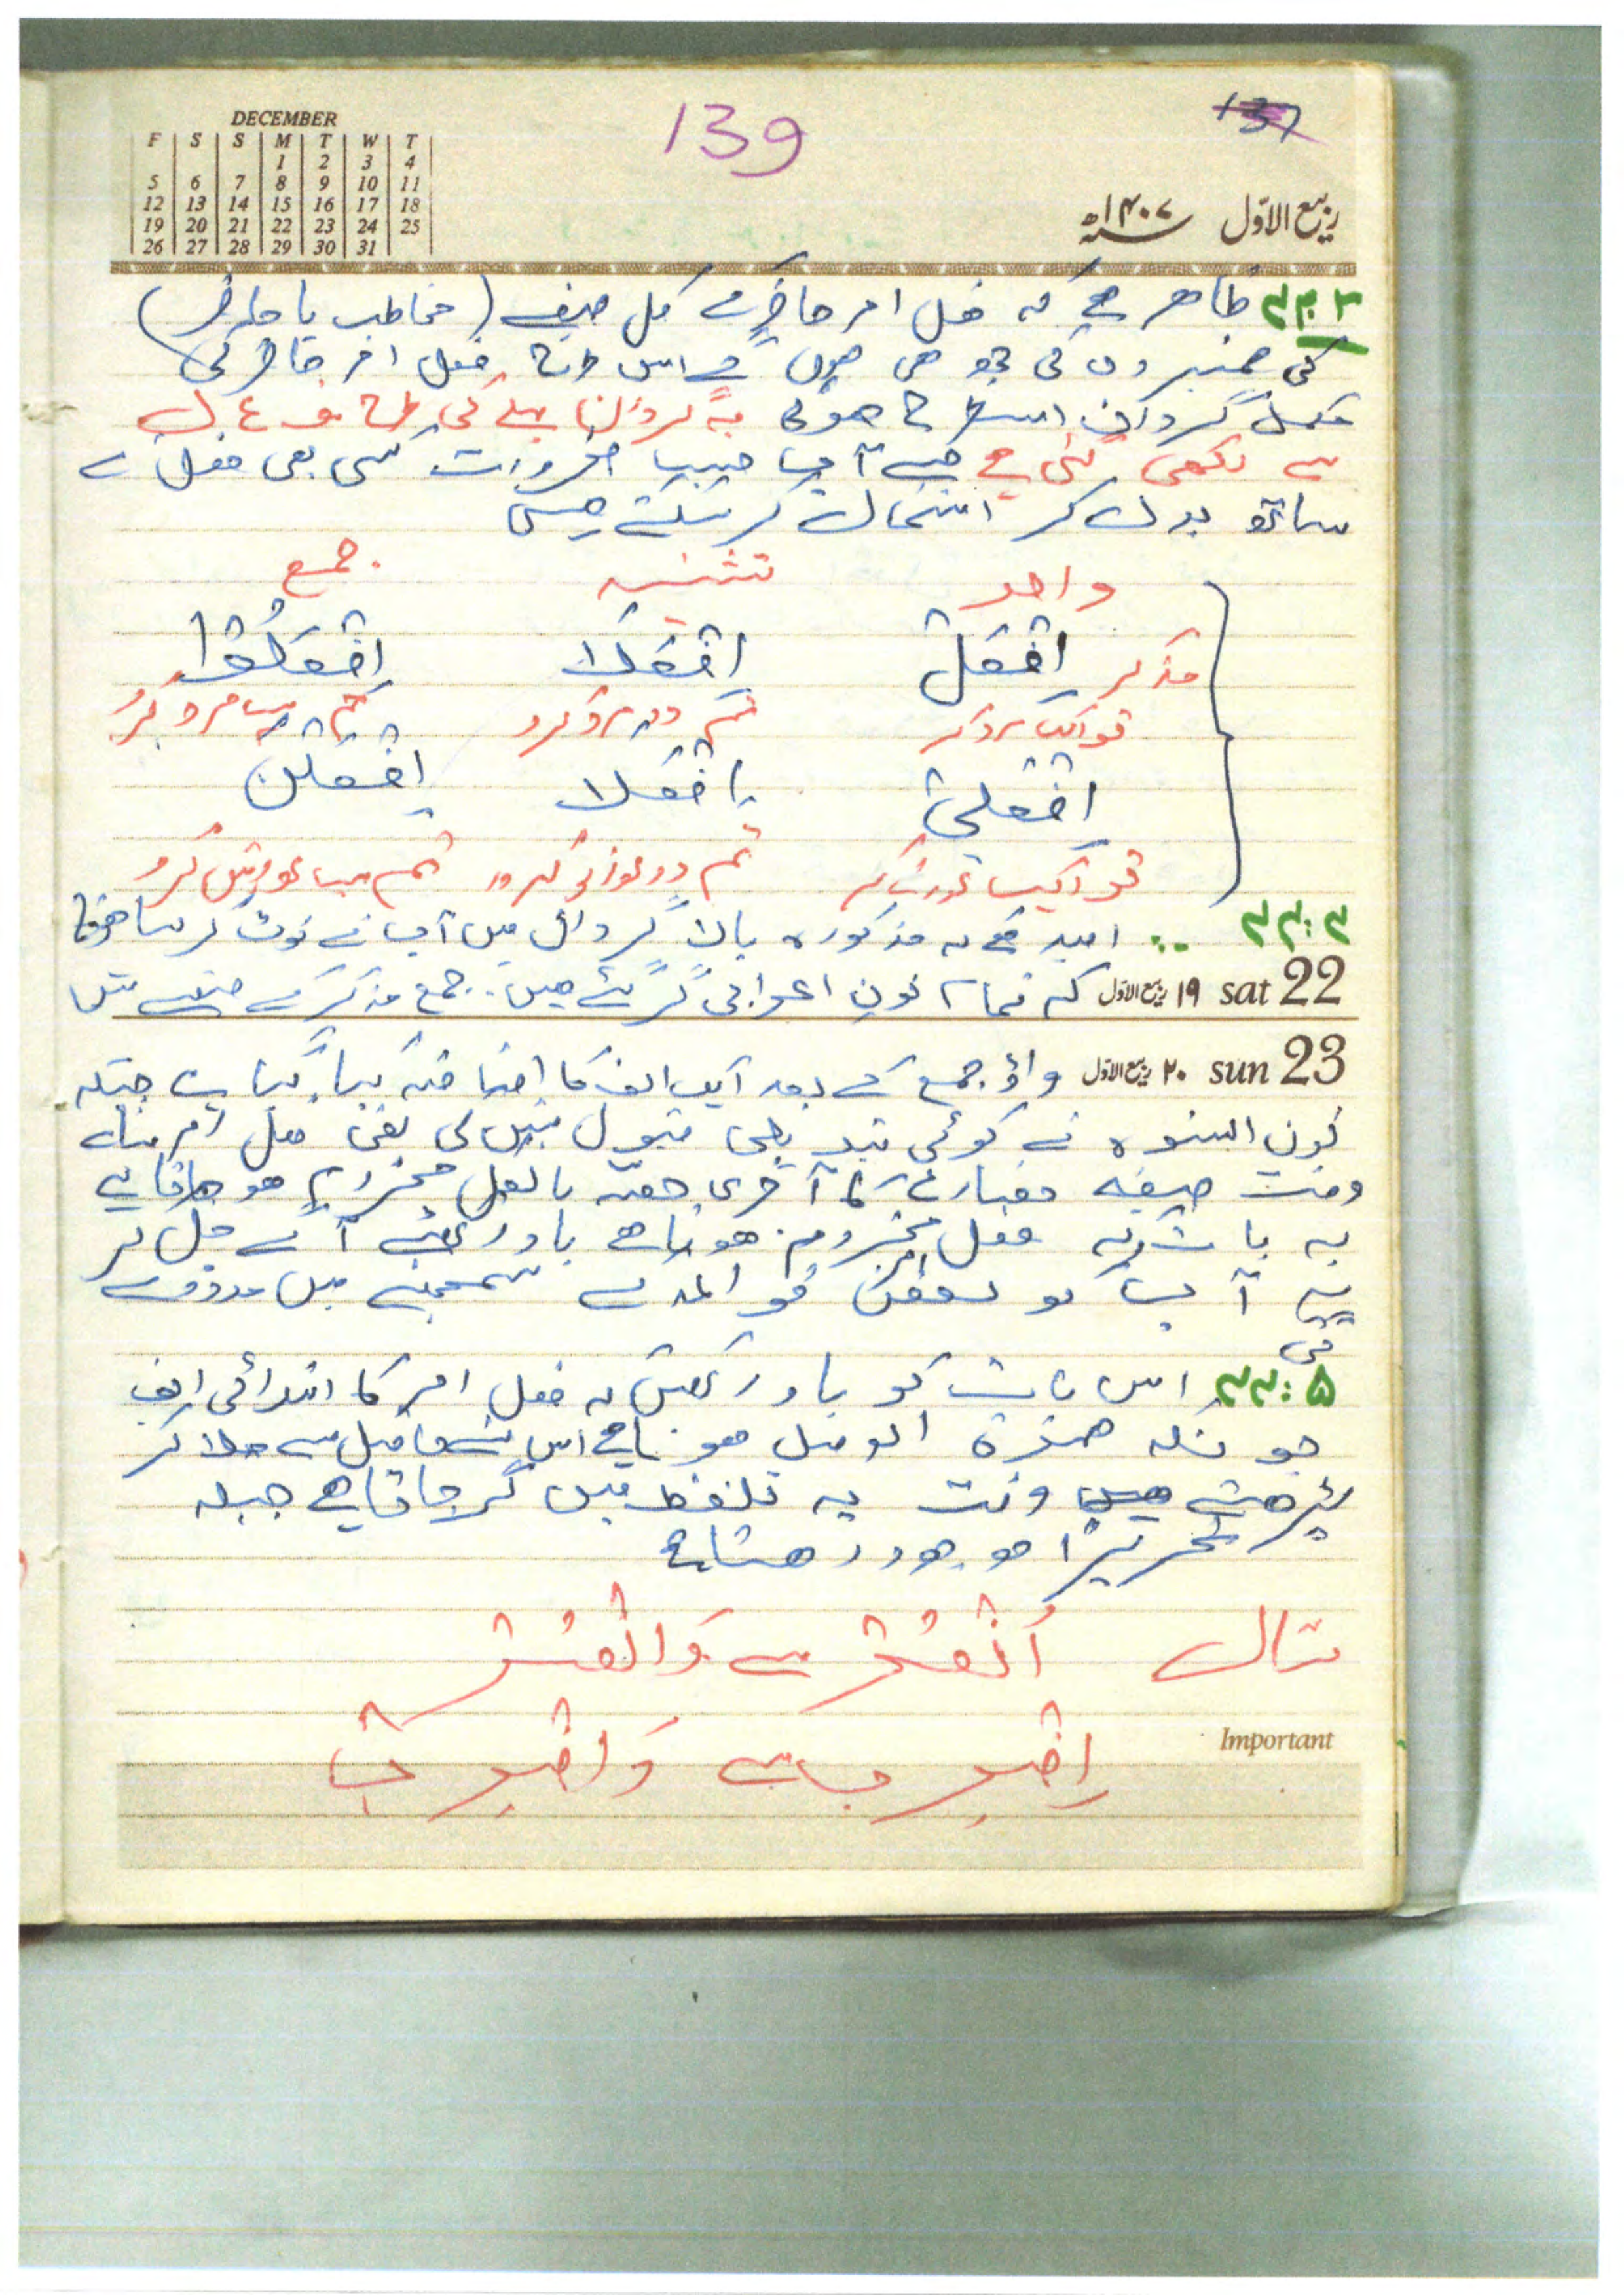 DECEMBER
F S S M T W T
1 2 3 4
5 6 7 8 9 10 11
12 13 14 15 16 17 18
19 20 21 22 23 24 25
26 27 28 29 30 31
139
137
ربیع الاوّل ۱۴۰۷ھ
ظاھر ہے کہ فعل امر حاضر کے کل صیغے (مخاطب یا حاضر)
کی ضمیروں کی جو ھی ھوں گے اس طرح فعل امر حاضر کی
مکمل گردان اسطرح ھوگی یہ گردان پہلے کی طرح ف ع ل
سے لکھی گئی ہے جسے آپ حسب ضرورت کسی بھی فعل کے
ساتھ بدل کر استعمال کر سکتے ھیں
واحد تثنیہ جمع
مذکر اِفْعَلْ اِفْعَلَا اِفْعَلُوْا
تو ایک مرد کر تم دو مرد کرو تم سب مرد کرو
اِفْعَلِیْ اِفْعَلَا اِفْعَلْنَ
تو ایک عورت کر تم دو عورتیں کرو تم سب عورتیں کرو
۳۳:۴ امید ہے کہ مذکورہ بالا گردان میں آپ نے نوٹ کر لیا ھوگا
22 sat ۱۹ ربیع الاوّل کہ تمام نون اعرابی گر گئے ھیں۔ جمع مذکر کے صیغے میں
23 sun ۲۰ ربیع الاوّل واؤ جمع کے بعد ایک الف کا اضافہ کیا گیا ہے جبکہ
نون النسوہ نے کوئی تبدیلی قبول نہیں کی یعنی فعل امر بناتے
وقت صیغہ مضارع کا آخری حصہ بالکل مجزوم ھو جاتا ہے
یہ بات کہ فعل امر مجزوم ھوتا ھے یاد رکھئے آگے چل کر
یہ آپ کو بعض قواعد کے سمجھنے میں مدد دے
گی
۳۳:۵ اس بات کو یاد رکھیں کہ فعل امر کا ابتدائی الف
چونکہ ھمزۃ الوصل ھوتا ہے اس لئے ماقبل سے ملا کر
پڑھتے وقت یہ تلفظ میں گر جاتا ہے جبکہ
تحریراً موجود رھتا ہے
مثال اُنْصُرْ سے وَانْصُرْ
اِضْرِبْ سے وَاضْرِبْ
Important